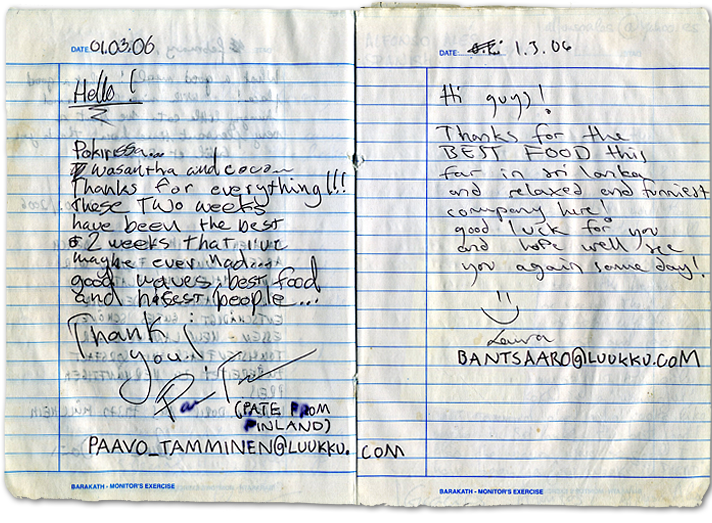 DATE 01.03.06
Hello!
Pokirissa...
wasantha and cocon
Thanks for everything!!!
These Two weeks
have been the best
2 weeks that i've
maybe ever had...
good waves, best food
and people...
Thank
you!
(PATE FROM
FINLAND)
PAAVO_TAMMINEN@LUUKKU.COM
BARAKATH - MONITOR'S EXERCISE
DATE: 1.3.06
Hi guys!
Thanks for the
BEST FOOD this
far in sri lankan
and relaxed and funniest
company here!
good luck for you
and hope we'll see
you again some day!
Laura
BANTSAARO@LUUKKU.COM
BARAKATH - MONITOR'S EXERCISE